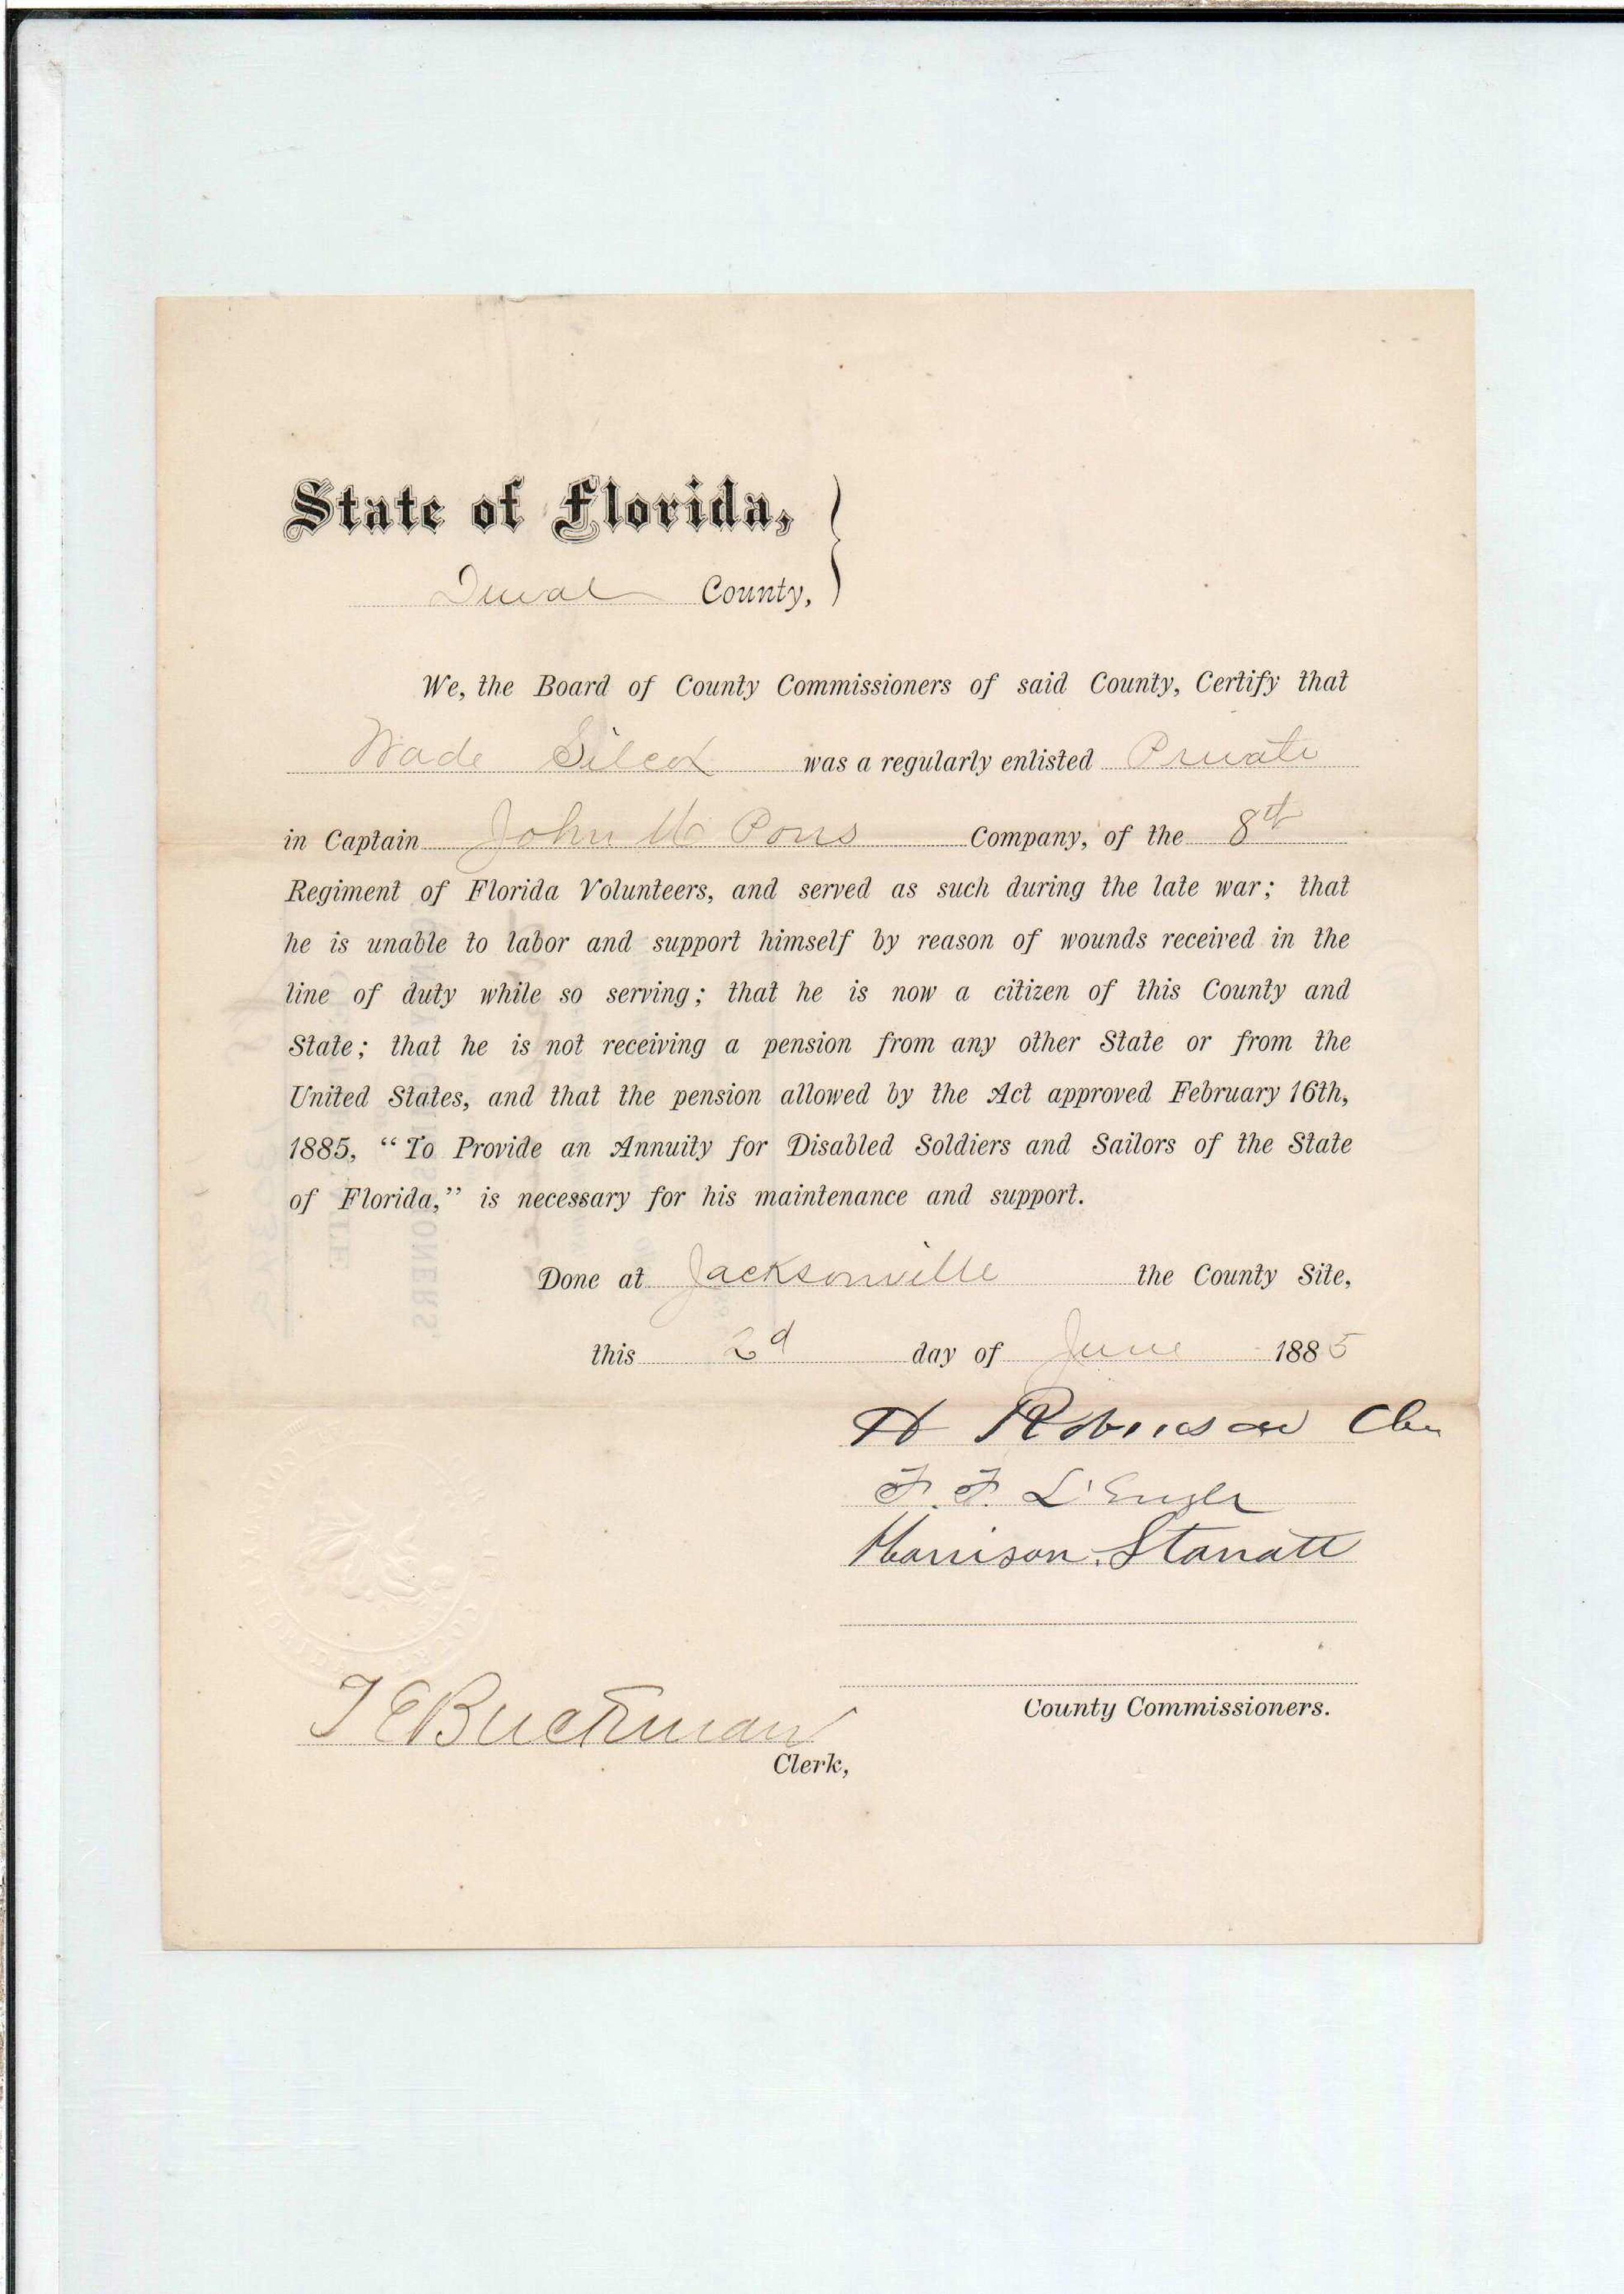 State of Florida,
Duval County,
We, the Board of County Commissioners of said County, Certify that
Wade Silcox was a regularly enlisted Private
in Captain John Pons Company, of the 8th
Regiment of Florida Volunteers, and served as such during the late war; that
he is unable to labor and support himself by reason of wounds received in the
line of duty while so serving; that he is now a citizen of this County and
State; that he is not receiving a pension from any other State or from the
United States, and that the pension allowed by the Act approved February 16th,
1885, "To Provide an Annuity for Disabled Soldiers and Sailors of the State
of Florida," is necessary for his maintenance and support.
Done at Jacksonville the County Site,
this 2d day of June 1885
H Robinson Chn
F. F. L'Engle
Harrison Starratt
County Commissioners.
T E Buckman
Clerk,